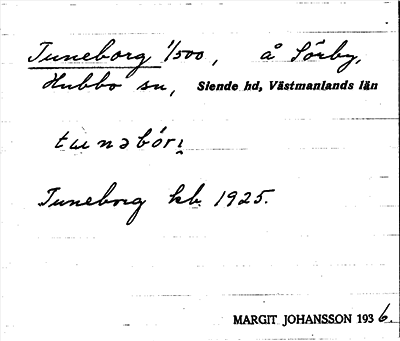 Tuneborg 1/500, å Sörby,
Hubbo sn, Siende hd, Västmanlands län
tunəbór̩
Tuneborg kb. 1925.
MARGIT JOHANSSON 1936.